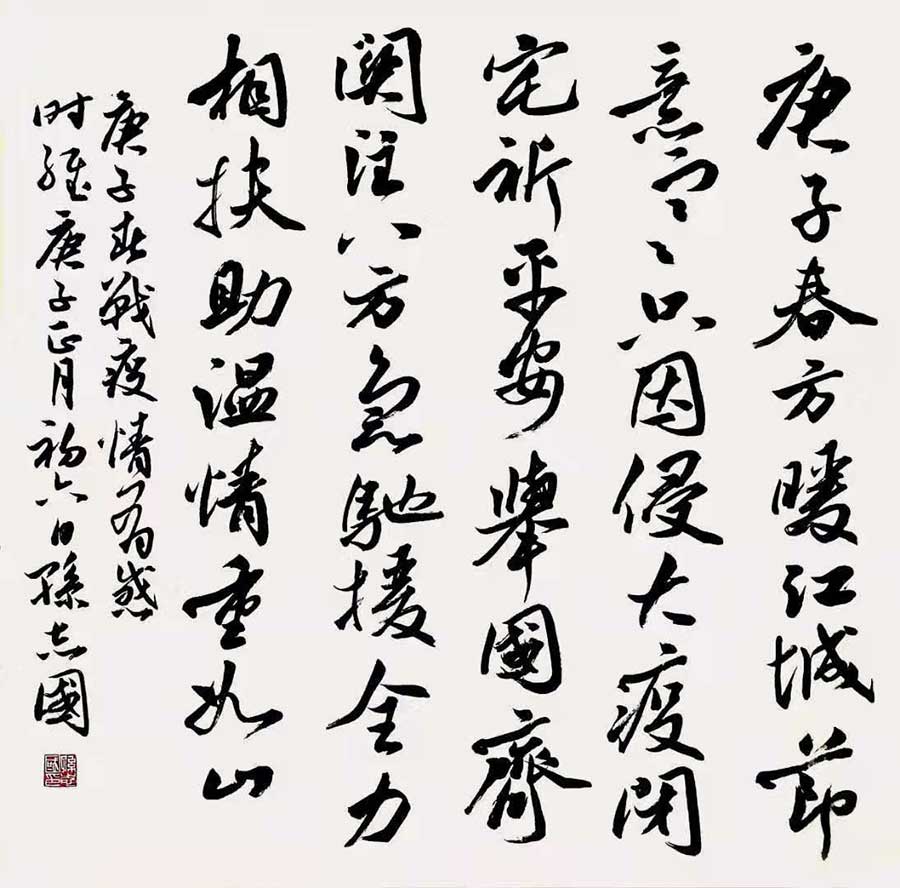 庚子春方暖江城節
意寒〻只因侵大疫閉
宅祈平安舉國齊
関注八方急馳援全力
相扶助温情重如山
庚子春戰疫情有感
时維庚子正月初六日孫志國